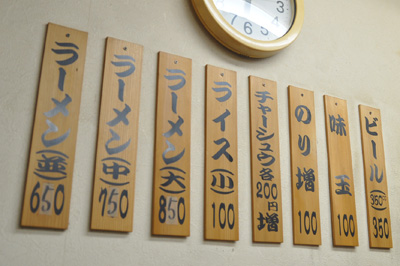 ラーメン(並)
650
ラーメン(中)
750
ラーメン(大)
850
ライス(小)
100
チャーシュウ各
200
円
増
のり増
100
味玉
100
ビール
350